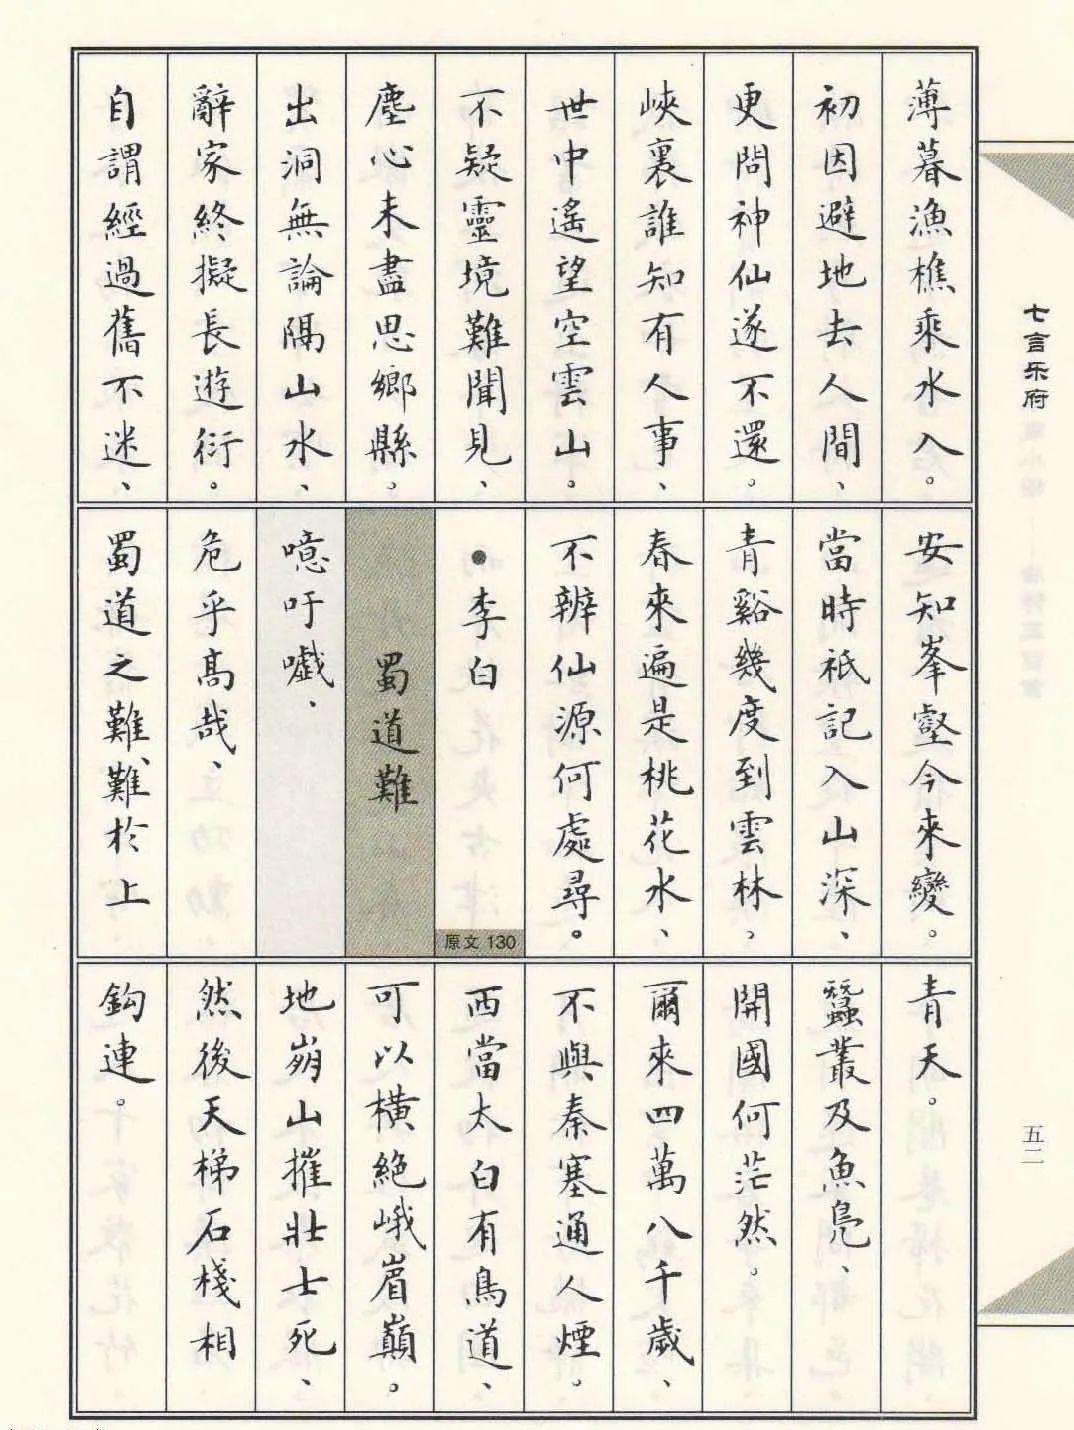 薄暮漁樵乘水入。
初因避地去人間、
更問神仙遂不還。
峽裏誰知有人事、
世中遙望空雲山。
不疑靈境難聞見、
塵心未盡思鄉縣。
出洞無論隔山水、
辭家終擬長遊衍。
自謂經過舊不迷、
安知峯壑今來變。
當時祇記入山深、
青谿幾度到雲林、
春來遍是桃花水、
不辨仙源何處尋。
•李白
原文 130
蜀道難
噫吁嚱、
危乎高哉、
蜀道之難、難於上
青天。
蠶叢及魚鳧、
開國何茫然。
爾來四萬八千歲、
不與秦塞通人煙。
西當太白有鳥道、
可以橫絕峨眉巔。
地崩山摧壯士死、
然後天梯石棧相
鈎連。
七言乐府
五二